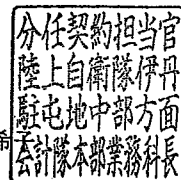 分任契約担当官
陸上自衛隊伊丹
駐屯地中部方面
会計隊本部業務科長
希